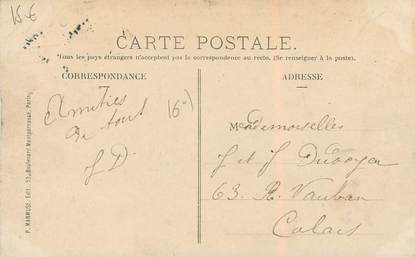 15 €
CARTE POSTALE.
Tous les pays étrangers n'acceptent pas la correspondance au recto. (Se renseigner à la poste).
CORRESPONDANCE
ADRESSE
Amitiés
de tous
J D
16 )
Mesdemoiselles
J et J
63 R. Vauban
Calais
P. MARMUSE Edit. Boulevard Paris